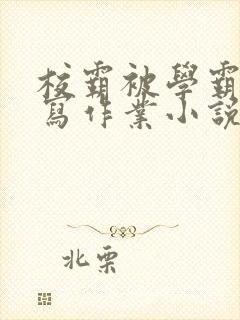 校霸被學霸
寫作業小說
北栗